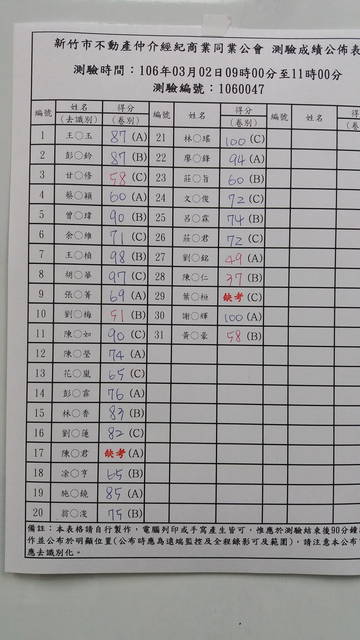 新竹市不動產仲介經紀商業同業公會 測驗成績公佈表
測驗時間：106年03月02日09時00分至11時00分
測驗編號：1060047
編號 姓名(去識別) 得分(卷別) 編號 姓名(去識別) 得分(卷別) 編號 姓名 得分
1 王○玉 87 (A) 21 林○瑤 100 (C)
2 彭○鈴 87 (B) 22 廖○鋒 94 (A)
3 甘○修 58 (C) 23 莊○旨 60 (B)
4 蔡○穎 60 (A) 24 文○俊 72 (C)
5 曾○瑋 90 (B) 25 呂○霖 74 (B)
6 余○維 71 (C) 26 莊○君 72 (C)
7 王○楨 98 (B) 27 劉○銘 49 (A)
8 胡○華 97 (C) 28 陳○仁 37 (B)
9 張○菁 69 (A) 29 葉○桓 缺考 (C)
10 劉○梅 51 (B) 30 謝○輝 100 (A)
11 陳○如 90 (C) 31 黃○豪 58 (B)
12 陳○瑩 74 (A)
13 花○嵐 65 (C)
14 彭○霖 76 (A)
15 林○香 83 (B)
16 劉○蓮 82 (C)
17 陳○君 缺考 (A)
18 涂○亨 65 (B)
19 施○鐃 85 (A)
20 翁○茂 75 (B)
備註：本表格請自行製作，電腦列印或手寫產生皆可，惟應於測驗結束後90分鐘
作並公布於明顯位置(公布時應為遠端監控及全程錄影可及範圍)，請注意本公布
應去識別化。